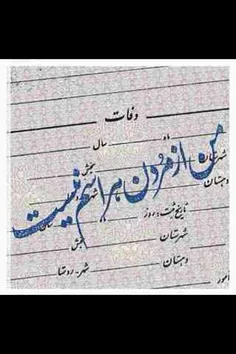 وفات
ماه سال
شهرستان بخش
دهستان شهر
من از مردن هراسم نیست
تاریخ ثبت : روز
شهرستان بخش
دهستان شهر - روستا